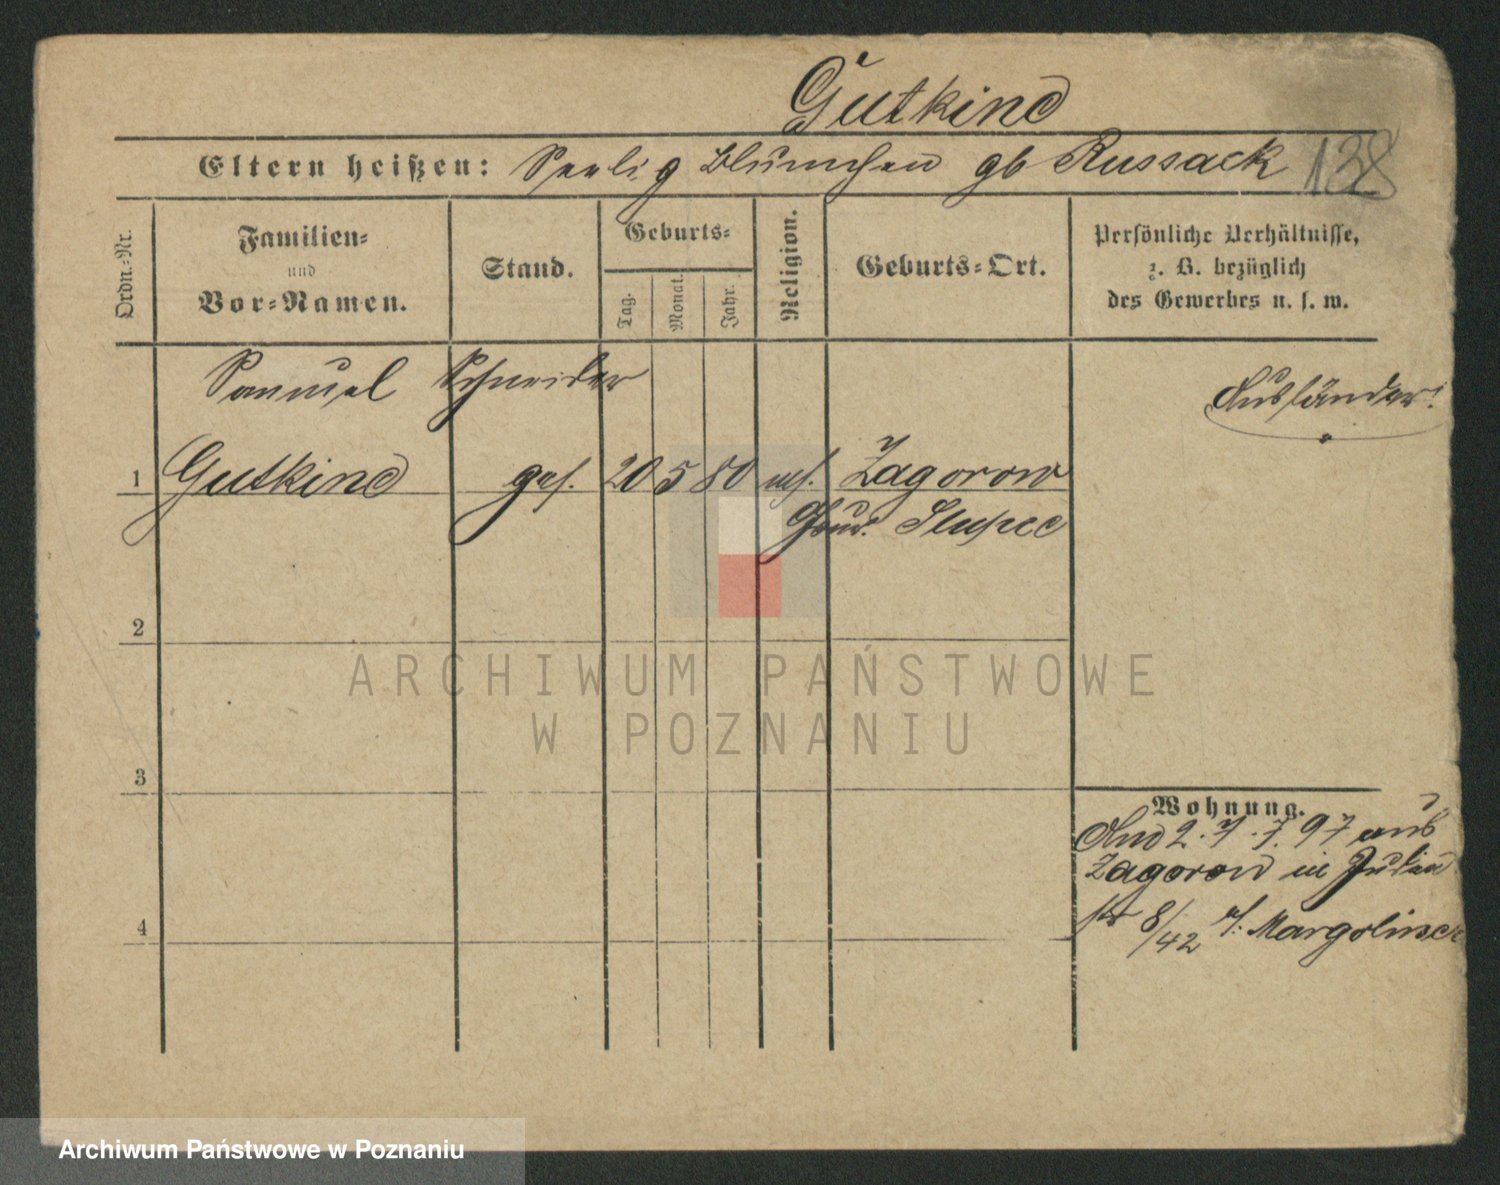 Gutkind
Eltern heißen: Seelig Blümchen gb Russack 138
Ordn.-Nr.
Familien-
und
Vor-Namen.
Stand.
Geburts-
Tag.
Monat.
Jahr.
Religion.
Geburts-Ort.
Persönliche Verhältnisse,
z. B. bezüglich
des Gewerbes u. s. w.
Samuel Schneider Ausländer!
1 Gutkind ges. 20 5 80 mos. Zagorow
Gouv. Slupce
2
3
4
Wohnung.
2. 7. 97 aus
Zagorow in
8/42 Margolinsc
ARCHIWUM PAŃSTWOWE
W POZNANIU
Archiwum Państwowe w Poznaniu